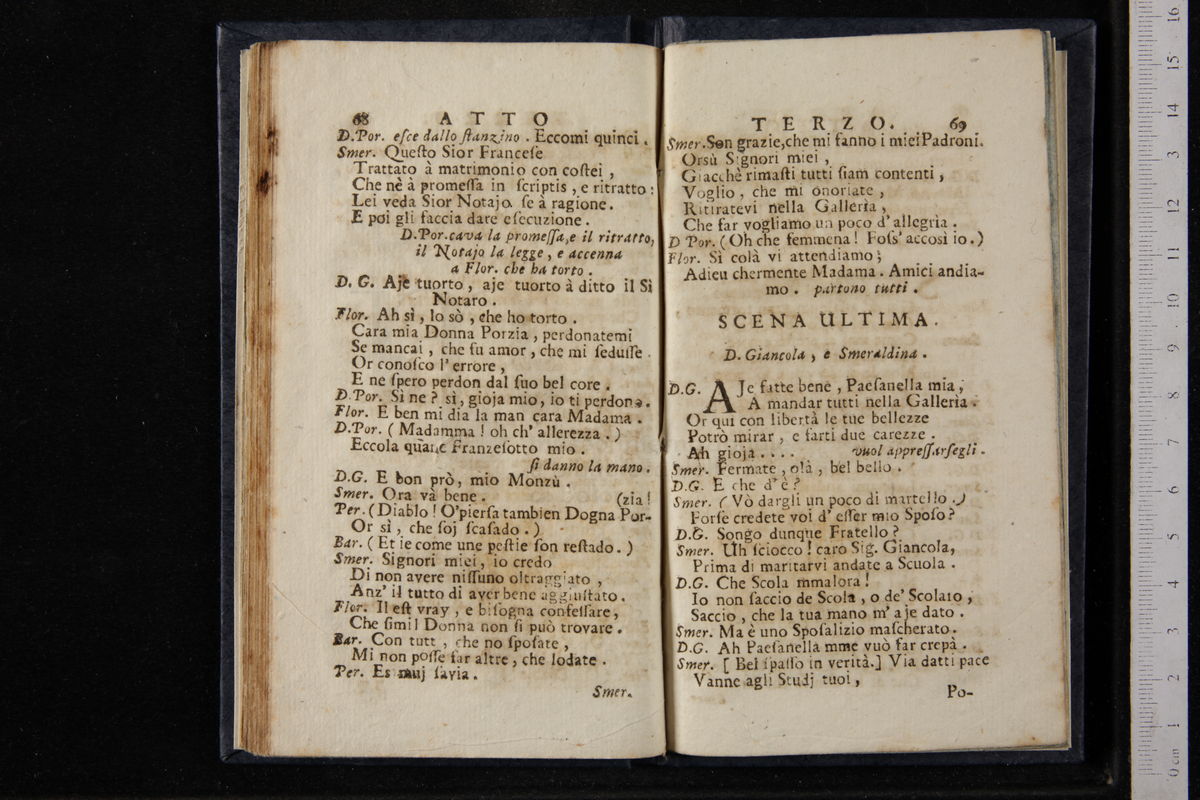 68 ATTO
D.Por. eſce dallo ſtanzino. Eccomi quinci.
Smer. Queſto Sior Franceſe
Trattato à matrimonio con coſtei,
Che nè à promeſſa in ſcriptis, e ritratto:
Lei veda Sior Notajo ſe à ragione.
E poi gli faccia dare eſecuzione.
D.Por. cava la promeſſa, e il ritratto,
il Notajo la legge, e accenna
a Flor. che ha torto.
D. G. Aje tuorto, aje tuorto à ditto il Sì
Notaro.
Flor. Ah sì, lo sò, che ho torto.
Cara mia Donna Porzia, perdonatemi
Se mancai, che fu amor, che mi ſeduſſe.
Or conoſco l'errore,
E ne ſpero perdon dal ſuo bel core.
D.Por. Sì ne? sì, gioja mio, io ti perdono.
Flor. E ben mi dia la man cara Madama.
D.Por. (Madamma! oh ch'allerezza.)
Eccola quane Franzeſotto mio.
ſi danno la mano.
D.G. E bon prò, mio Monzù.
Smer. Ora và bene. (zia!
Per. (Diablo! O'pierſa tambien Dogna Por-
Or sì, che ſoj ſcaſado.)
Bar. (Et ie come une peſtie ſon reſtado.)
Smer. Signori miei, io credo
Di non avere niſſuno oltraggiato,
Anz' il tutto di aver bene aggiuſtato.
Flor. Il eſt vray, e biſogna confeſſare,
Che ſimil Donna non ſi può trovare.
Bar. Con tutt, che no ſpoſate,
Mi non poſſe far altre, che lodate.
Per. Es muj ſavia.
Smer.
TERZO. 69
Smer. Son grazie, che mi fanno i miei Padroni.
Orsù Signori miei,
Giacchè rimaſti tutti ſiam contenti,
Voglio, che mi onoriate,
Ritiratevi nella Galleria,
Che far vogliamo un poco d'allegria.
D Por. (Oh che femmena! Foſs' accosì io.)
Flor. Sì colà vi attendiamo;
Adieu chermente Madama. Amici andia-
mo. partono tutti.
SCENA ULTIMA.
D. Giancola, e Smeraldina.
D.G. AJe fatte bene, Paeſanella mia,
A mandar tutti nella Galleria.
Or qui con libertà le tue bellezze
Potrò mirar, e farti due carezze.
Ah gioja.... vuol appreſſarſegli.
Smer. Fermate, olà, bel bello.
D.G. E che d'è?
Smer. (Vò dargli un poco di martello.)
Forſe credete voi d' eſſer mio Spoſo?
D.G. Songo dunque Fratello?
Smer. Uh ſciocco! caro Sig. Giancola,
Prima di maritarvi andate a Scuola.
D.G. Che Scola mmalora!
Io non faccio de Scola, o de' Scolaio,
Saccio, che la tua mano m' aje dato.
Smer. Ma è uno Spoſalizio maſcherato.
D.G. Ah Paeſanella mme vuò far crepà.
Smer. [Bel ſpaſſo in verità.] Via datti pace
Vanne agli Studj tuoi,
Po-